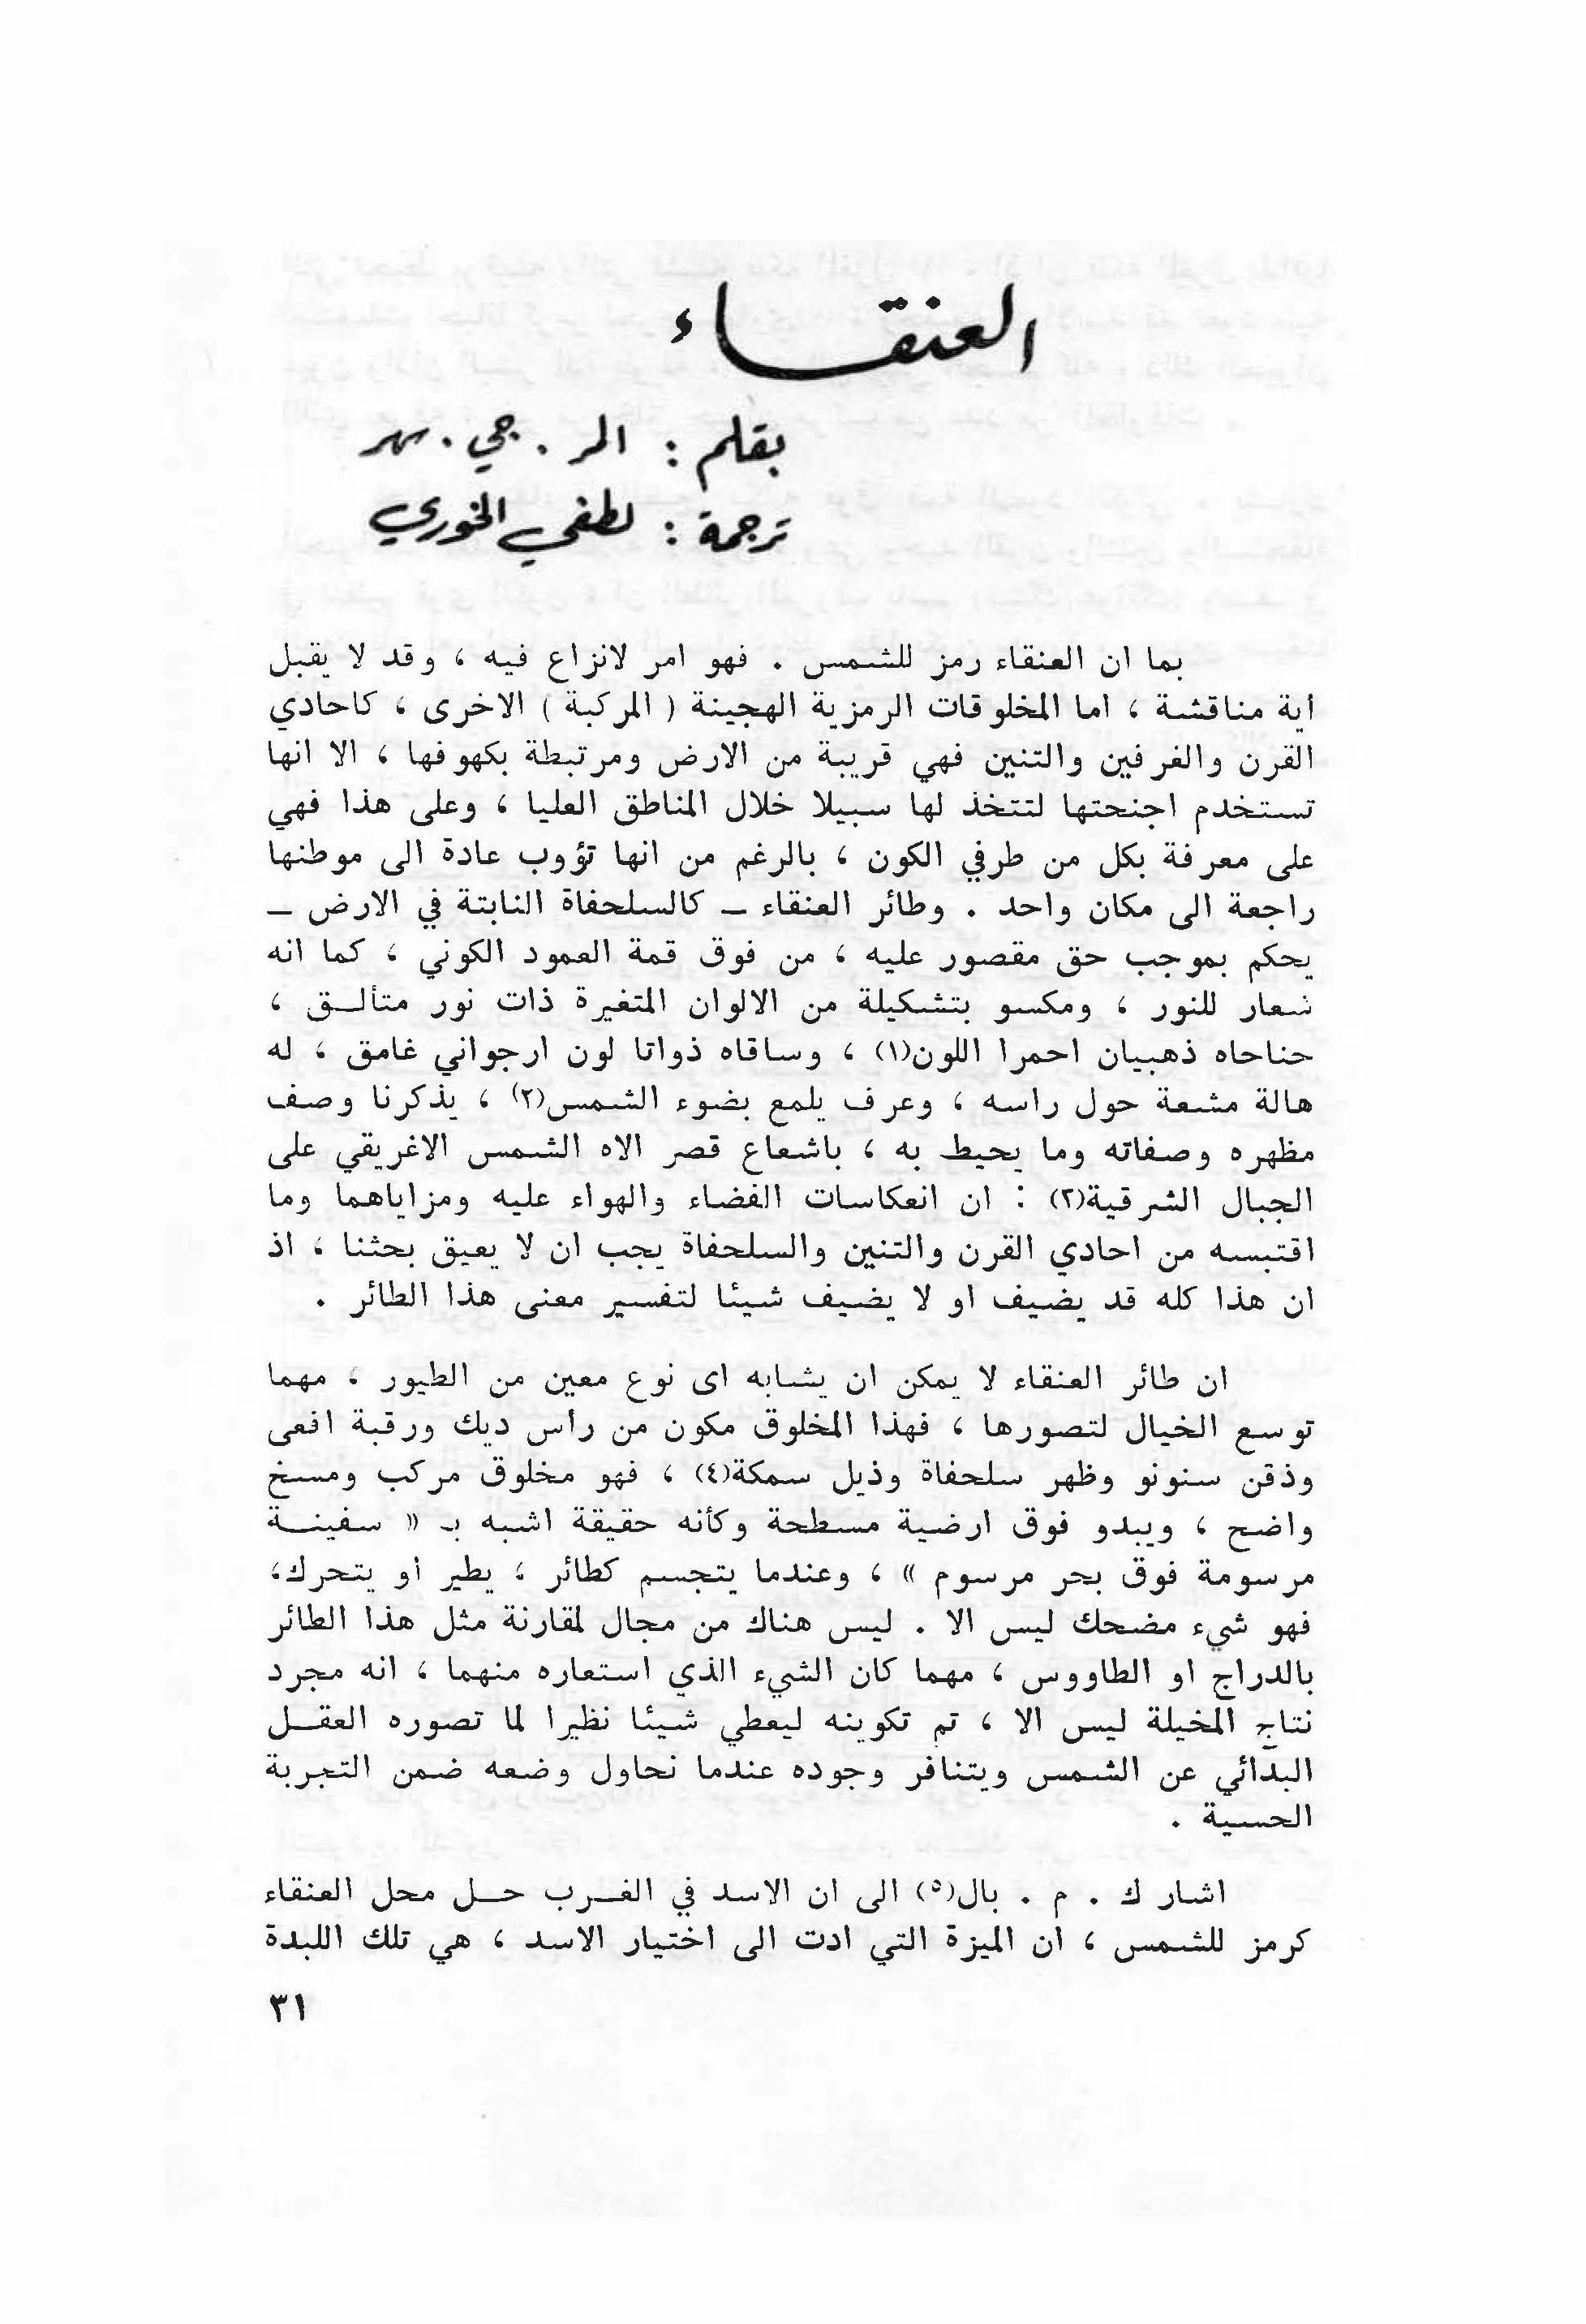 العنقاء
بقلم : الر . جي . سهر
ترجمة : لطفي الخوري
بما ان العنقاء رمز للشمس . فهو امر لانزاع فيه ، وقد لا يقبل
اية مناقشة ، اما المخلوقات الرمزية الهجينة ( المركبة ) الاخرى ، كاحادي
القرن والغرفين والتنين فهي قريبة من الارض ومرتبطة بكهوفها ، الا انها
تستخدم اجنحتها لتتخذ لها سبيلا خلال المناطق العليا ، وعلى هذا فهي
على معرفة بكل من طرفي الكون ، بالرغم من انها تؤوب عادة الى موطنها
راجعة الى مكان واحد . وطائر العنقاء ـ كالسلحفاة النابتة في الارض ـ
يحكم بموجب حق مقصور عليه ، من فوق قمة العمود الكوني ، كما انه
شعار للنور ، ومكسو بتشكيلة من الالوان المتغيرة ذات نور متألــق ،
حناحاه ذهبيان احمرا اللون(١) ، وساقاه ذواتا لون ارجواني غامق ، له
هالة مشعة حول راسه ، وعرف يلمع بضوء الشمس(٢) ، يذكرنا وصف
مظهره وصفاته وما يحيط به ، باشعاع قصر الاه الشمس الاغريقي على
الجبال الشرقية(٣) : ان انعكاسات الفضاء والهواء عليه ومزاياهما وما
اقتبسه من احادي القرن والتنين والسلحفاة يجب ان لا يعيق بحثنا ، اذ
ان هذا كله قد يضيف او لا يضيف شيئا لتفسير معنى هذا الطائر .
ان طائر العنقاء لا يمكن ان يشابه اى نوع معين من الطيور ، مهما
توسع الخيال لتصورها ، فهذا المخلوق مكون من رأس ديك ورقبة افعى
وذقن سنونو وظهر سلحفاة وذيل سمكة(٤) ، فهو مخلوق مركب ومسخ
واضح ، ويبدو فوق ارضية مسطحة وكأنه حقيقة اشبه بـ « سفينــة
مرسومة فوق بحر مرسوم » ، وعندما يتجسم كطائر ، يطير او يتحرك،
فهو شيء مضحك ليس الا . ليس هناك من مجال لمقارنة مثل هذا الطائر
بالدراج او الطاووس ، مهما كان الشيء الذي استعاره منهما ، انه مجرد
نتاج المخيلة ليس الا ، تم تكوينه ليعطي شيئا نظيرا لما تصوره العقــل
البدائي عن الشمس ويتنافر وجوده عندما نحاول وضعه ضمن التجربة
الحسية .
اشار ك . م . بال(٥) الى ان الاسد في الغــرب حــل محل العنقاء
كرمز للشمس ، ان الميزة التي ادت الى اختيار الاسد ، هي تلك اللبدة
٣١